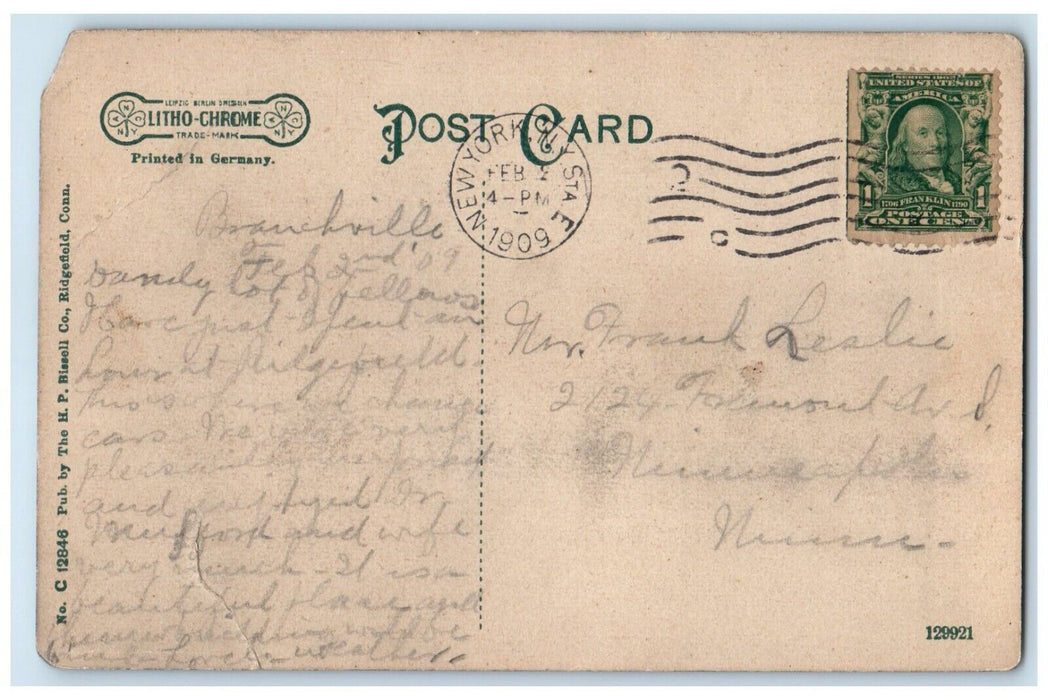 LEIPZIG BERLIN DRESDEN
LITHO-CHROME
TRADE-MARK
Printed in Germany.
POST CARD
NEW YORK, N.Y. STA F
FEB 2
4-PM
1909
SERIES 1902
UNITED STATES OF
AMERICA
1 1
1706 FRANKLIN 1790
POSTAGE
ONE CENT
No. C 12846 Pub. by The H. P. Bissell Co., Ridgefield, Conn.
Branchville
Feb 2nd '09
Dandy lot of fellows
Have just spent an
hour at Ridgefield
this where we change
cars. We were very
pleasantly
and enjoyed Mr
and wife
very much - It is a
beautiful place and
building will be
weather.
Mr. Frank Leslie
2124 Fremont Av S.
Minneapolis
Minn -
129921